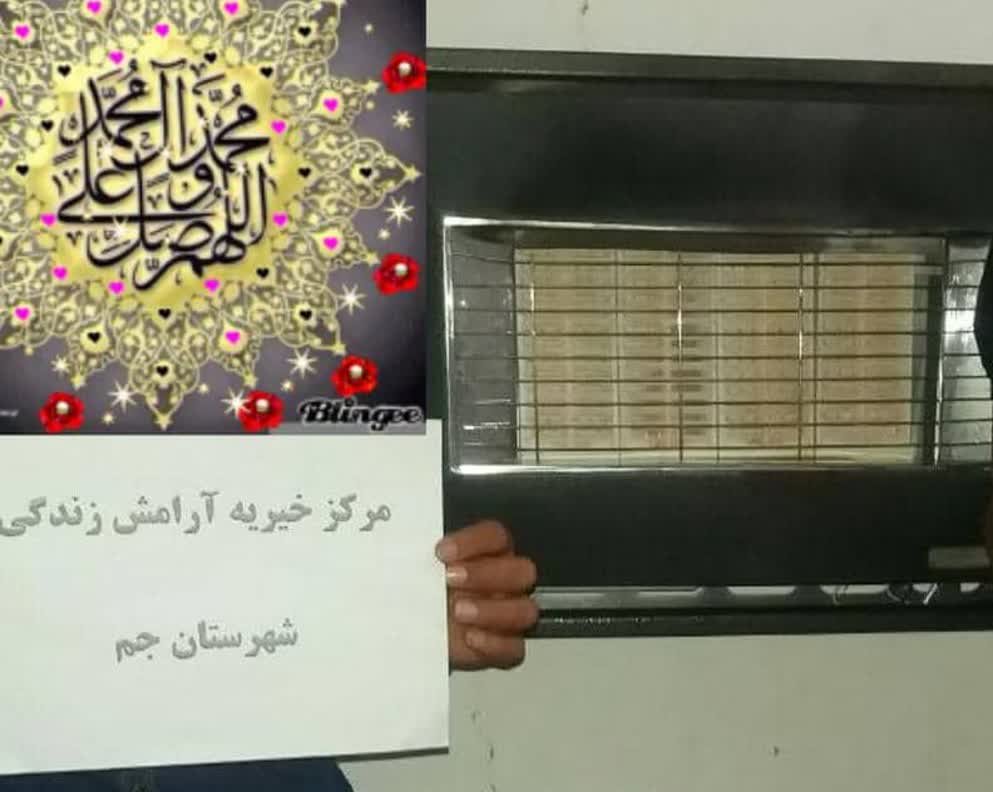 اللهم صل على
محمد وآل محمد
Blingee
مرکز خیریه آرامش زندگی
شهرستان جم